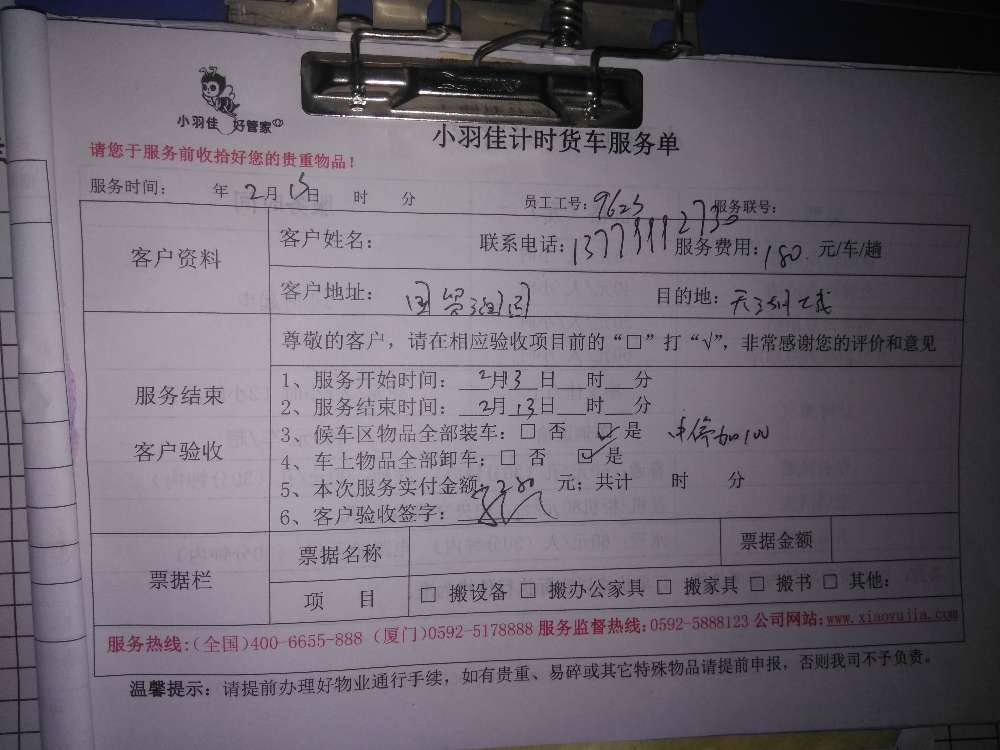 小羽佳 好管家
小羽佳计时货车服务单
请您于服务前收拾好您的贵重物品！
服务时间： 年 2月 15日 时 分 员工工号：9625 服务联号：
客户资料
客户姓名： 联系电话： 服务费用：180 元/车/趟
客户地址： 目的地：
服务结束
客户验收
尊敬的客户，请在相应验收项目前的“□”打“√”，非常感谢您的评价和意见
1、服务开始时间： 2月13日 时 分
2、服务结束时间： 2月13日 时 分
3、候车区物品全部装车：□ 否 ☑ 是 中停加100
4、车上物品全部卸车：□ 否 ☑ 是
5、本次服务实付金额：280 元；共计 时 分
6、客户验收签字：
票据栏
票据名称 票据金额
项 目 □ 搬设备 □ 搬办公家具 □ 搬家具 □ 搬书 □ 其他：
服务热线：(全国)400-6655-888 (厦门)0592-5178888 服务监督热线：0592-5888123 公司网站：www.xiaoyujia.com
温馨提示：请提前办理好物业通行手续，如有贵重、易碎或其它特殊物品请提前申报，否则我司不予负责。